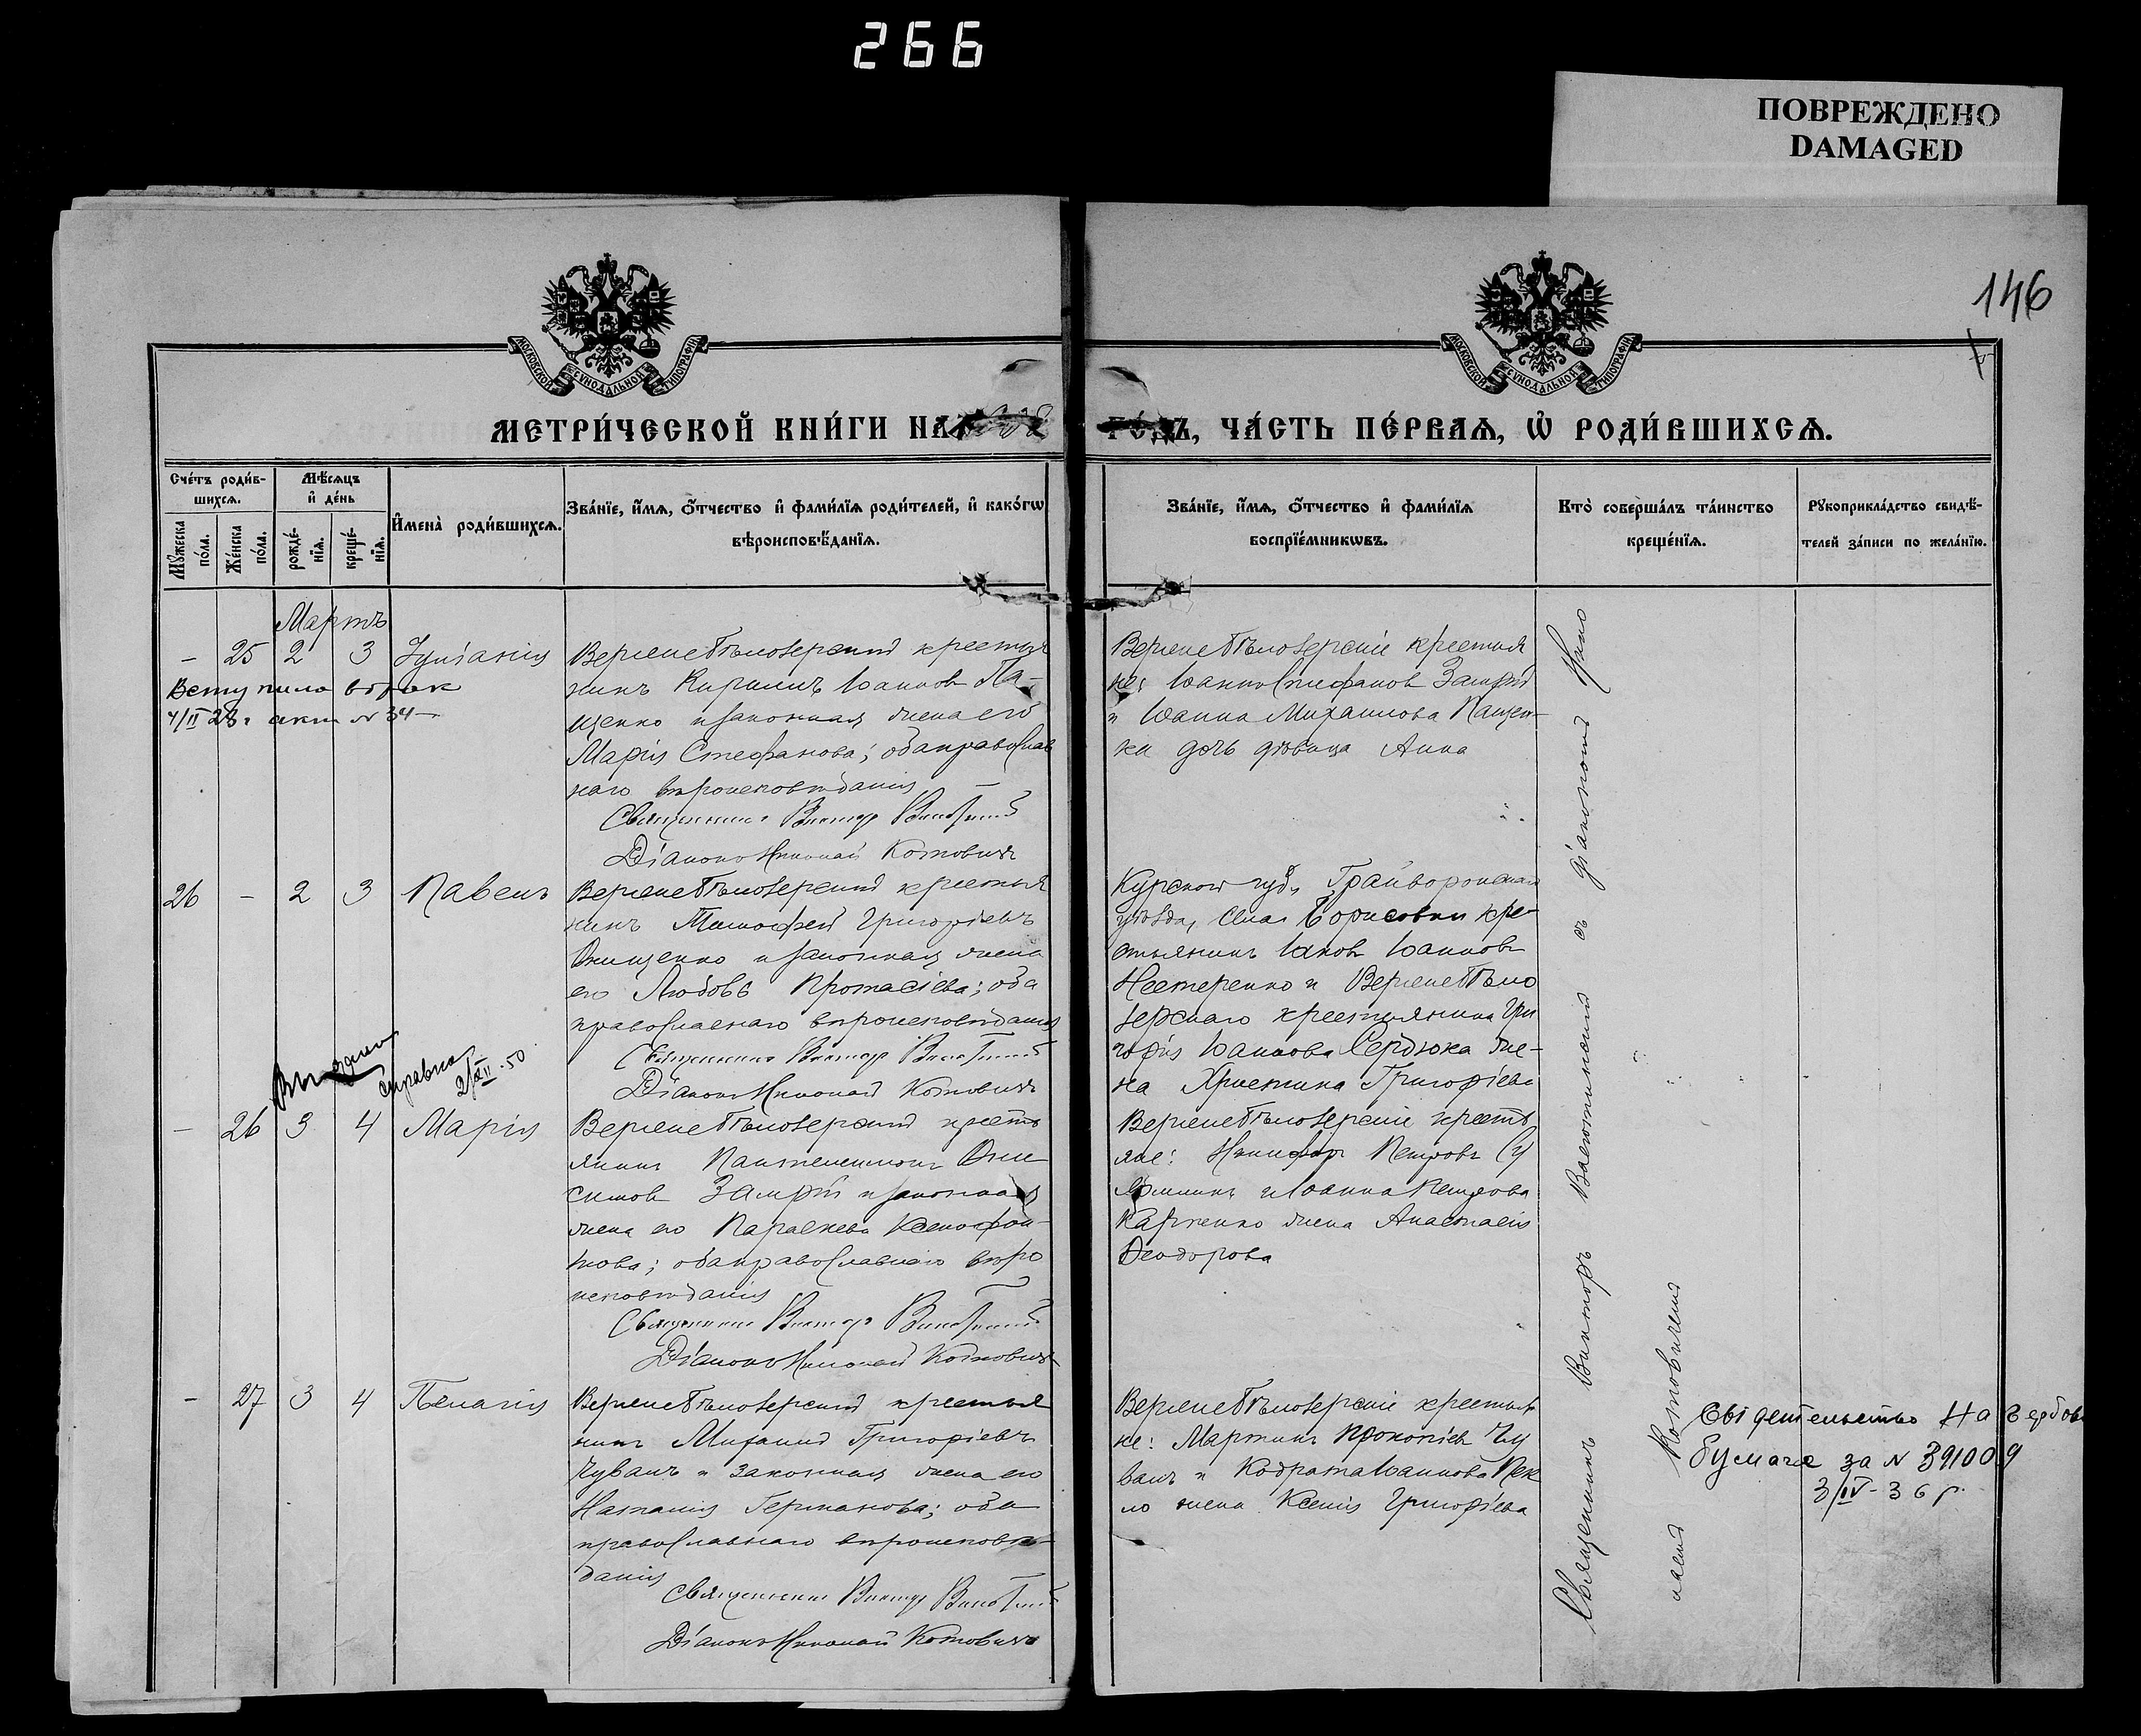 266
ПОВРЕЖДЕНО
DAMAGED
146
МОСКОВСКОЙ СѴНОДАЛЬНОЙ ТИПОГРАФІИ
МОСКОВСКОЙ СѴНОДАЛЬНОЙ ТИПОГРАФІИ
МЕТРИ́ЧЕСКОЙ КНИ́ГИ НА
ГО́ДЪ, ЧА́СТЬ ПЕ́РВАѦ, Ѡ҆ РОДИ́ВШИХСѦ.
Сче́тъ роди́в-
шихсѧ.
Мѣ́сѧцъ
и҆ де́нь
Мꙋ́жеска
по́ла.
Же́нска
по́ла.
рожде́-
нїѧ.
креще́-
нїѧ.
И҆мена̀ роди́вшихсѧ.
Зва́нїе, и҆́мѧ, ѻ҆́тчество и҆ фами́лїѧ роди́телей, и҆ како́гѡ
вѣроисповѣ́данїѧ.
Зва́нїе, и҆́мѧ, ѻ҆́тчество и҆ фами́лїѧ
воспрїе́мникѡвъ.
Кто̀ соверша́лъ та́инство
креще́нїѧ.
Рꙋкоприкла́дство свидѣ́-
телей за́писи по жела́нїю.
Мартъ
– 25 2 3 Іуліанія
Вступила в брак
4/II 28 г акт N 34
Верхнебѣлозерскій крестья
нинъ Кириллъ Іоанновъ Па-
щенко и законная жена его
Марія Стефанова; оба православ
наго вѣроисповѣданія
Священникъ Викторъ
Діаконъ Николай Котовичъ
Верхнебѣлозерскіе крестья
не: Іоаннъ Стефановъ Замрій
и Іоанна Михайлова Пащен-
ки дочь дѣвица Анна
26 – 2 3 Павелъ
Верхнебѣлозерскій крестья
нинъ Тимофей Григоріевъ
Онищенко и законная жена
его Любовь Протасіева; оба
православнаго вѣроисповѣданія
Священникъ Викторъ
Діаконъ Николай Котовичъ
Курской губ., Грайворонскаго
уѣзда, села Борисовки кре-
стьянинъ Іаковъ Іоанновъ
Нестеренко и Верхнебѣло
зерскаго крестьянина Гри
горія Іоаннова Сердюка же-
на Христина Григоріева
справка
2/XII-50
– 26 3 4 Марія
Верхнебѣлозерскій кресть
янинъ Пантелеимонъ Они
симовъ Замрій и законная
жена его Параскева Ксенофон-
това; оба православнаго вѣро
исповѣданія
Священникъ Викторъ
Діаконъ Николай Котовичъ
Верхнебѣлозерскіе кресть
яне: Никифоръ Петровъ
и Іоанна Петрова
Карпенко жена Анастасія
Ѳеодорова
– 27 3 4 Пелагія
Верхнебѣлозерскій крестья
нинъ Михаилъ Григоріевъ
Чуванъ и законная жена его
Наталія Германова; оба
православнаго вѣроисповѣ-
данія
Священникъ Викторъ
Діаконъ Николай Котовичъ
Верхнебѣлозерскіе крестья
не: Мартинъ Прокопіевъ Чу
ванъ и Кодрата Іоаннова Пек
ло жена Ксенія Григоріева
Священникъ Викторъ съ діакономъ Нико
лаемъ Котовичемъ
Свідетельство На Гербов
бумаге за N 391009
3/IV-36 г.